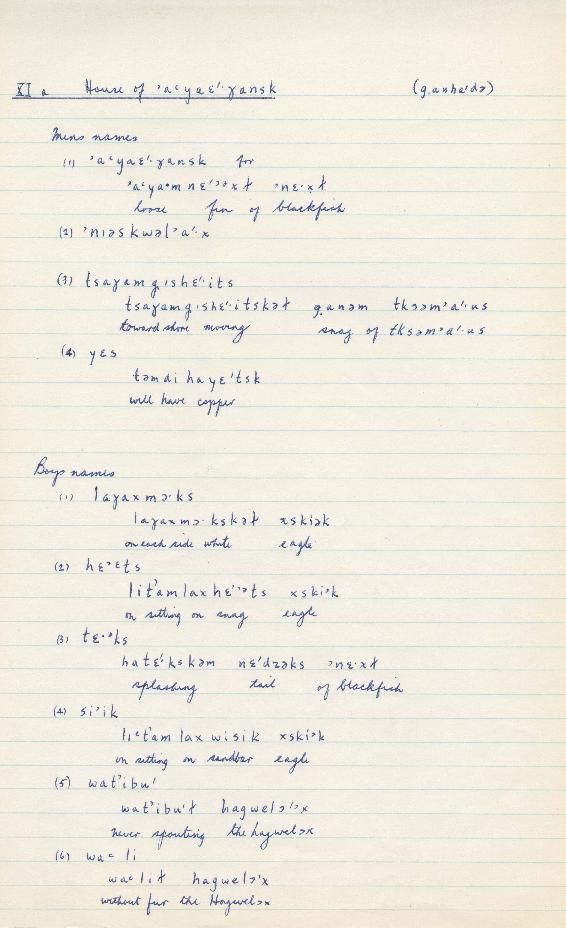 XI a House of ʾaᶜyaɛ'·ɣansk (g̣anha'də)
Mens names
(1) ʾaᶜyaɛ'·ɣansk for
ʾaᶜya*m nɛ'ʾəxɫ ʾnɛ·x̣ɫ
loose fin of blackfish
(2) ʾnıəskwəlʾa'·x
(3) tsaɣamg̣ıshɛ'·its
tsaɣamg̣ıshɛ'·itskəɫ g̣anəm tksəmʾa'·us
toward shore moving snag of tksəmʾa'·us
(4) yɛs
təmdi hayɛ'tsk
will have copper
Boys names
(1) laɣaxmɔ·ks
laɣaxmɔ·kskəɫ xskiək
on each side white eagle
(2) hɛʾɛts
litʾam lax hɛ'ʾəts xskiʾk
on sitting on snag eagle
(3) tɛ·ʾks
hatɛ'·kskəm nɛ'dzəks ʾnɛ·xɫ
splashing tail of blackfish
(4) siʾik
lıᶜtʾam lax wisik xskiʾk
on sitting on sandbar eagle
(5) watʾibu'
watʾibu'ɫ hagwelɔ'ʾx
never spouting the hagwelɔx
(6) waᶜ li
waᶜ liɫ hagwelɔ'x
without fur the Hagwelɔx